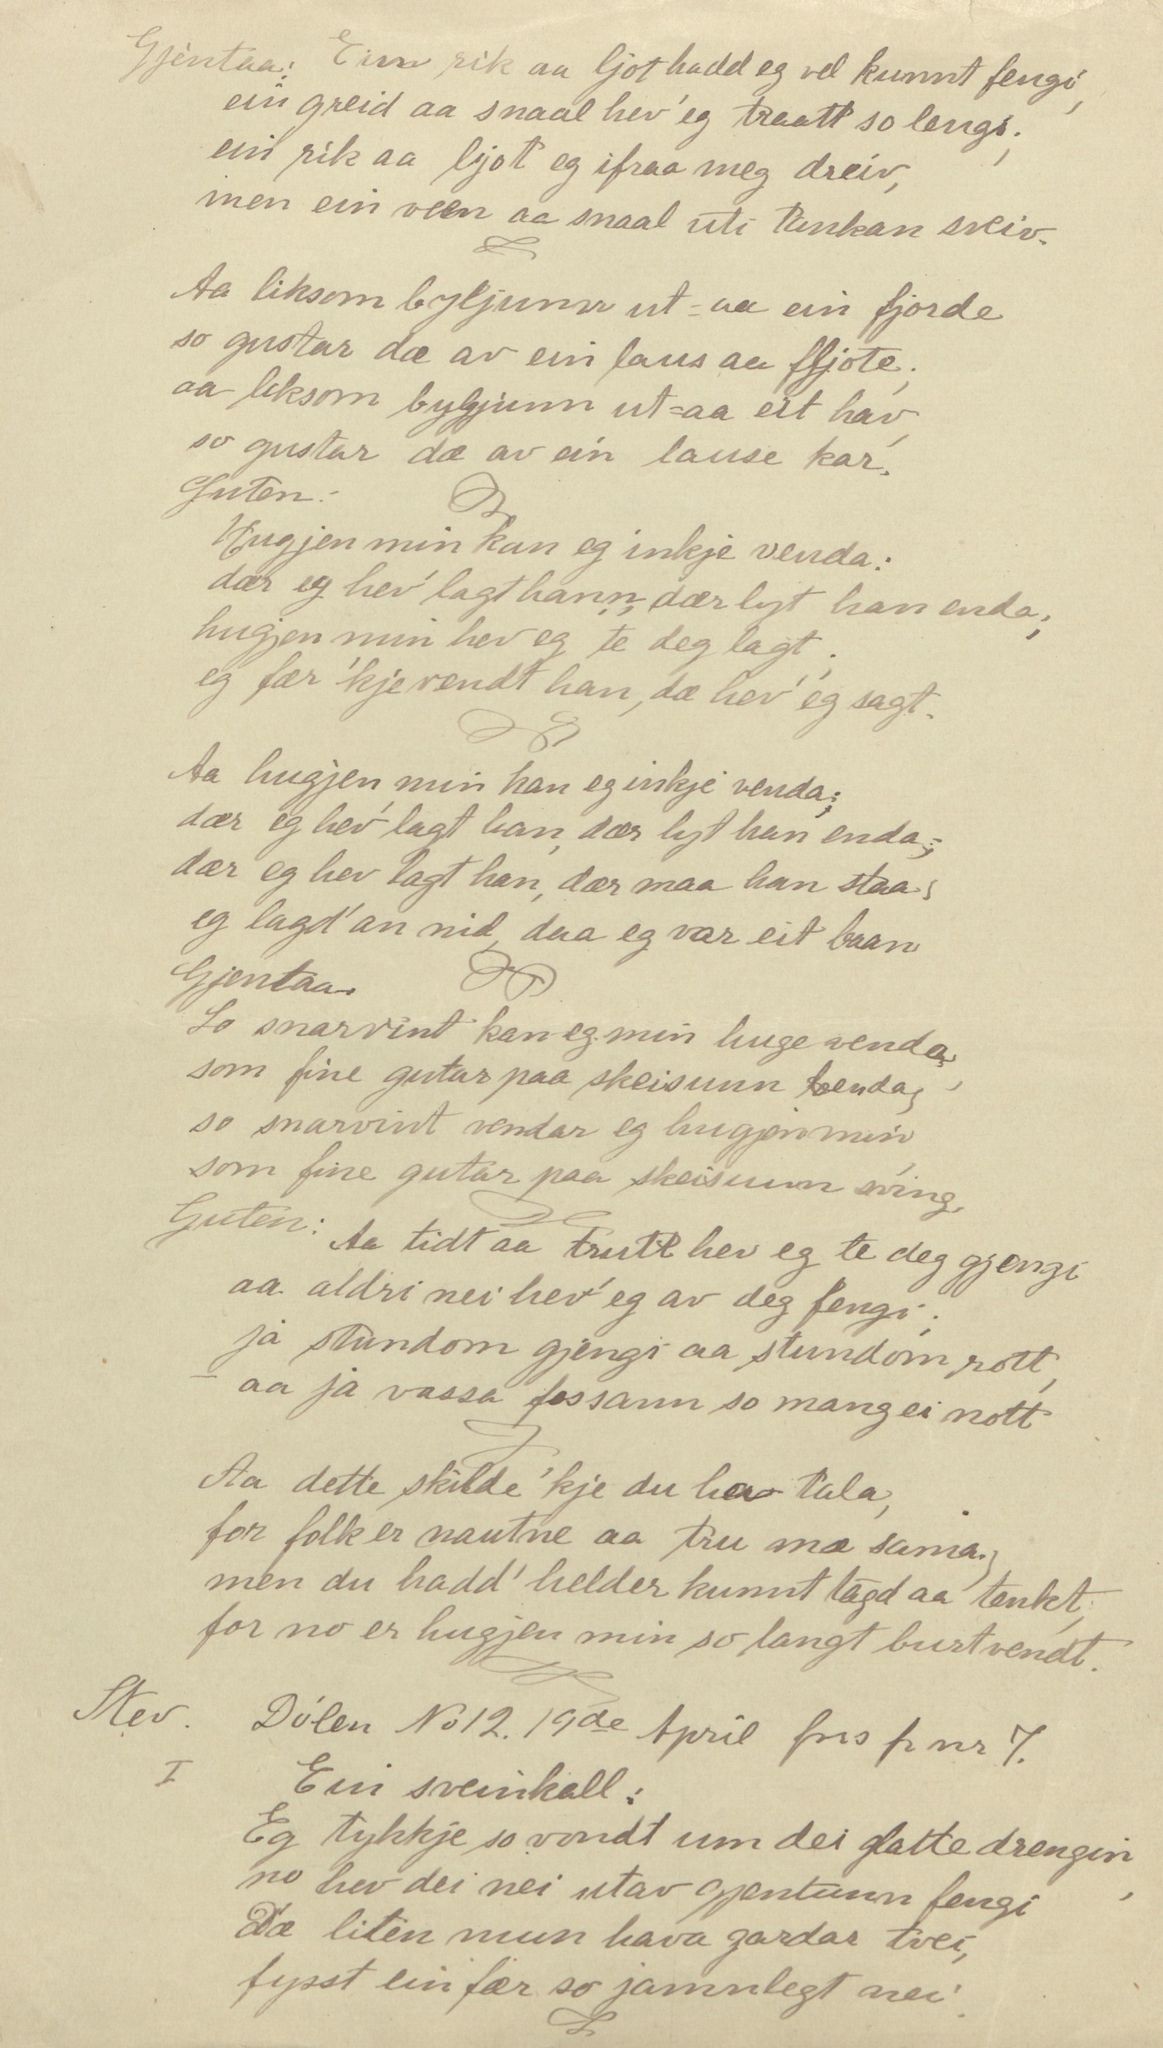 Gjentaa: Ein rik aa ljot hadd eg vel kunnt fengi,
ein greid aa snaal hev' eg traatt so lengi;
ein rik aa ljot eg ifraa meg dreiv,
men ein veen aa snaal uti tankan sveiv.
Aa liksom byljunn ut-aa ein fjorde
so gustar dæ av ein laus aa fljote;
aa liksom bylgjunn ut-aa eit hav,
so gustar dæ av ein lause kar.
Guten:-
Hugjen min kan eg inkje venda:
dær eg hev' lagt hann, dær lyt han enda;
hugjen min hev eg te deg lagt;
eg fær 'kje vendt han, dæ hev' eg sagt.
Aa hugjen min kan eg inkje venda;
dær eg hev' lagt han, dær lyt han enda;
dær eg hev lagt han, dær maa han staa;
eg lagd' an nid, daa eg var eit baan
Gjentaa.
So snarvint kan eg min huge venda,
som fine gutar paa skeisunn renda;
so snarvint vendar eg hugjen min
som fine gutar paa skeisunn sving.
Guten: Aa tidt aa trutt hev eg te deg gjengi
aa aldri nei hev' eg av deg fengi;
ja stundom gjengi aa stundom rott,
- aa ja vassa fossann so mang ei nott
Aa dette skilde 'kje du ha tala,
for folk er nautne aa tru mæ sama;
men du hadd' helder kunnt tagd aa tenkt;
for no er hugjen min so langt burtvendt.
Stev. Dólen No 12. 19de April frs f. nr 7.
I Ein sveinkall:
Eg tykkje so vondt um dei flatte drengin,
no hev dei nei utav gjentunn fengi
Dæ liten mun hava gardar tvei,
fysst ein fær so jamnlegt nei.